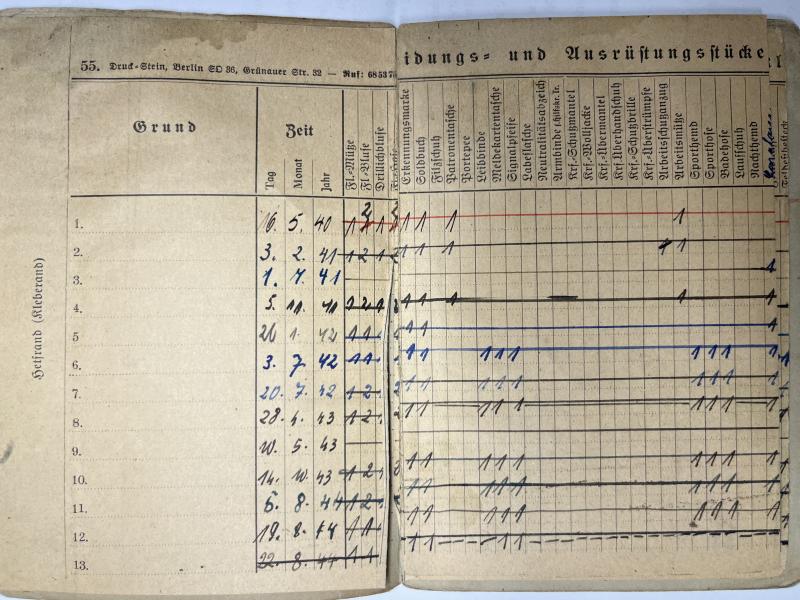 55. Druck-Stein, Berlin SO 36, Grünauer Str. 32 — Ruf: 68 53 70
idungs- und Ausrüstungsstücke
Grund
Zeit
Tag
Monat
Jahr
Fl.-Mütze
Fl.-Bluse
Drillichbluse
Erkennungsmarke
Soldbuch
Filzschuh
Patronentasche
Portepee
Leibbinde
Meldekartentasche
Signalpfeife
Labeflasche
Neutralitätsabzeich
Armbinde f. Hilfskr. Tr.
Krf.-Schutzmantel
Krf.-Wolljacke
Krf.-Übermantel
Krf.Überhandschuh
Krf.-Schutzbrille
Krf.-Überstrümpfe
Arbeitsschutzanzug
Arbeitsmütze
Sporthemd
Sporthose
Badehose
Laufschuh
Nachthemd
Heftrand (Kleberand)
1. 16. 5. 40 1 2 1 1 1 1 1
2. 3. 2. 41 1 2 1 1 1 1 1 1
3. 1. 7. 41 1
4. 5. 11. 41 1 2 1 1 1 1 1 1
5 26 1. 42 1 1 1 1 1
6. 3. 7 42 1 1 1 1 1 1 1 1 1 1 1
7. 20. 7. 42 1 2 1 1 1 1 1 1 1 1 1
8. 28. 4. 43 1 2 1 1 1 1 1 1 1 1 1
9. 10. 5. 43
10. 14. 10. 43 1 2 1 1 1 1 1 1 1 1 1
11. 6. 8. 44 1 2 1 1 1 1 1 1 1 1 1
12. 19. 8. 44 1 1 1 1 1 1 1 1 1 1 1
13. 22. 8. 44 1 1 1 1 1 1